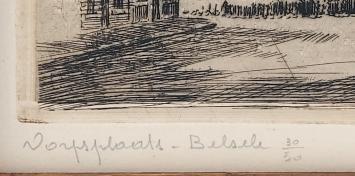 Dorpsplaats - Belsele 30/50